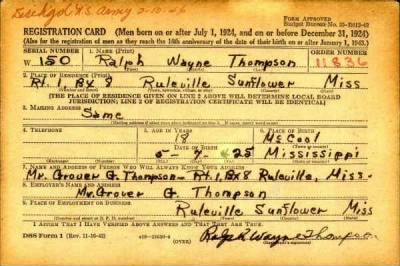 Discharged U.S. Army 2-10-46
Form Approved
Budget Bureau No. 33-R012-42
REGISTRATION CARD (Men born on or after July 1, 1924, and on or before December 31, 1924)
(Also for the registration of men as they reach the 18th anniversary of the date of their birth on or after January 1, 1943.)
SERIAL NUMBER 1. NAME (Print) ORDER NUMBER
W 150 Ralph Wayne Thompson 11836
(First) (Middle) (Last)
2. PLACE OF RESIDENCE (Print)
Rt. 1, Bx 8 Ruleville Sunflower Miss
[THE PLACE OF RESIDENCE GIVEN ON LINE 2 ABOVE WILL DETERMINE LOCAL BOARD
JURISDICTION; LINE 2 OF REGISTRATION CERTIFICATE WILL BE IDENTICAL]
3. MAILING ADDRESS
Same
4. TELEPHONE 5. AGE IN YEARS 6. PLACE OF BIRTH
18 McCool
DATE OF BIRTH
5- 7- 25 Mississippi
7. NAME AND ADDRESS OF PERSON WHO WILL ALWAYS KNOW YOUR ADDRESS
Mr. Grover G. Thompson- Rt. 1, Bx 8 Ruleville, Miss.
8. EMPLOYER'S NAME AND ADDRESS
Mr. Grover G. Thompson
9. PLACE OF EMPLOYMENT OR BUSINESS
Ruleville Sunflower Miss
I AFFIRM THAT I HAVE VERIFIED ABOVE ANSWERS AND THAT THEY ARE TRUE.
DSS Form 1 (Rev. 11-16-42) (OVER) Ralph Wayne Thompson